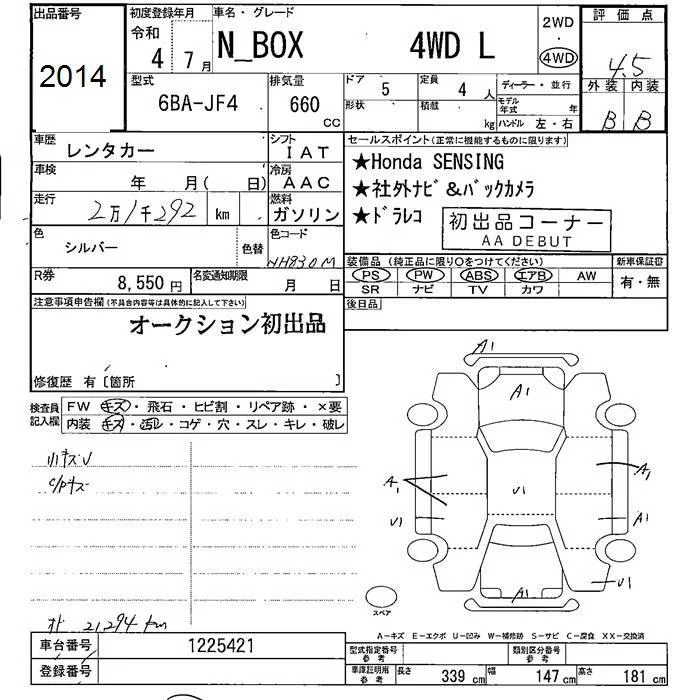 出品番号 初度登録年月 車名・グレード 2WD 評価点
2014 令和 4年 7月 N_BOX 4WD L 4WD 4.5
型式 排気量 ドア 定員 ディーラー・並行 外装 内装
6BA-JF4 660 CC 5 4人 モデル年式 年 B B
形状 積載 kg ハンドル 左・右
車歴 レンタカー シフト IAT セールスポイント(正常に機能するものに限ります)
車検 年 月( 日) 冷房 AAC ★Honda SENSING
走行 2万1千292 km 燃料 ガソリン ★社外ナビ&バックカメラ
★ドラレコ 初出品コーナー
AA DEBUT
色 シルバー 色替 色コード NH830M
装備品(純正品に限り○をつけてください) 新車保証書
PS PW ABS エアB AW 有・無
SR ナビ TV カワ
R券 8,550円 名変通知期限 月 日
後日品
注意事項申告欄(不具合内容等は具体的に記入して下さい)
オークション初出品
修復歴 有〔箇所 〕
検査員記入欄 FW キズ・飛石・ヒビ割・リペア跡・×要
内装 キズ・汚レ・コゲ・穴・スレ・キレ・破レ
小キズU
C/Pキズ
A1
A1
A1 U1 A1
U1 A1
U1
A1
スペア
オド 21,294km
A-キズ E-エクボ U-凹み W-補修跡 S-サビ C-腐食 XX-交換済
車台番号 1225421 型式指定番号 参考 類別区分番号 参考
登録番号 車庫証明用 参考 長さ 339cm 幅 147cm 高さ 181cm